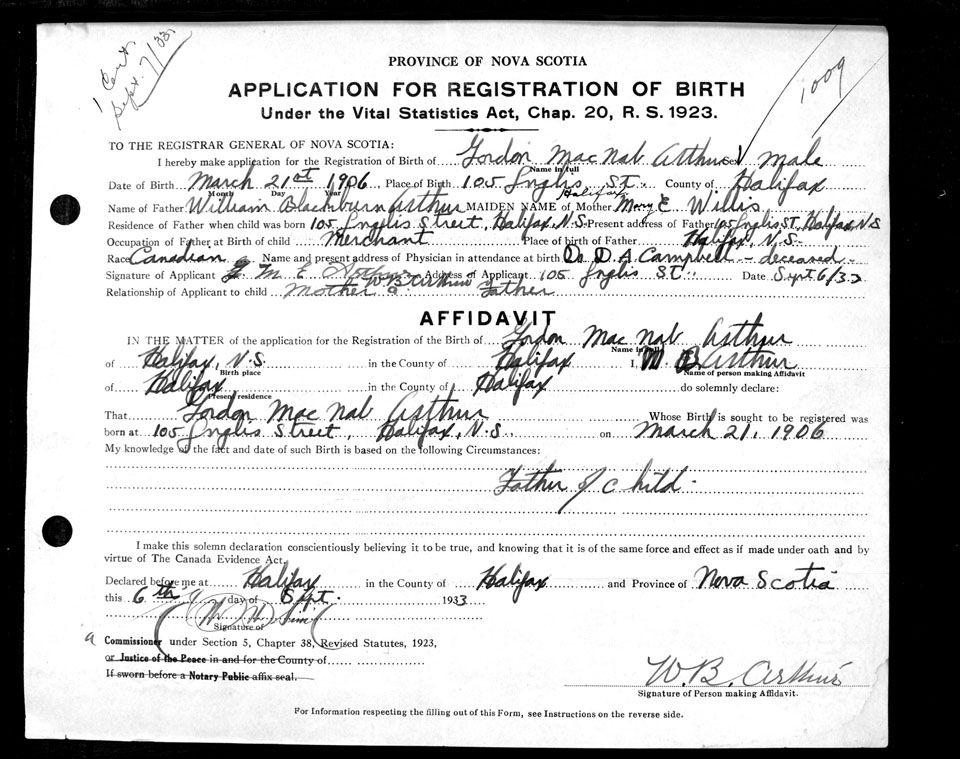 1 Cert.
Sept. 7/33
1009
PROVINCE OF NOVA SCOTIA
APPLICATION FOR REGISTRATION OF BIRTH
Under the Vital Statistics Act, Chap. 20, R. S. 1923.
TO THE REGISTRAR GENERAL OF NOVA SCOTIA:
I hereby make application for the Registration of Birth of Gordon Mac Nab Arthur Male
Name in full
Date of Birth March 21st 1906 Place of Birth 105 Inglis St. County of Halifax
Month Day Year Halifax
Name of Father William Blackburn Arthur MAIDEN NAME of Mother Mary E Willis
Residence of Father when child was born 105 Inglis Street, Halifax, N.S. Present address of Father 105 Inglis St, Halifax N S
Occupation of Father at Birth of child Merchant Place of birth of Father Halifax, N.S.
Race Canadian Name and present address of Physician in attendance at birth Dr D. A. Campbell - deceased -
Signature of Applicant M E Arthur W B Arthur Address of Applicant 105 Inglis St. Date Sept 6/33
Relationship of Applicant to child Mother & Father
AFFIDAVIT
IN THE MATTER of the application for the Registration of the Birth of Gordon Mac Nab Arthur
Name in full
of Halifax, N.S. in the County of Halifax I, W B Arthur
Birth place Name of person making Affidavit
of Halifax in the County of Halifax do solemnly declare:
Present residence
That Gordon Mac Nab Arthur Whose Birth is sought to be registered was
born at 105 Inglis Street, Halifax, N.S. on March 21, 1906
My knowledge of the fact and date of such Birth is based on the following Circumstances:
Father of child.
I make this solemn declaration conscientiously believing it to be true, and knowing that it is of the same force and effect as if made under oath and by
virtue of The Canada Evidence Act.
Declared before me at Halifax in the County of Halifax and Province of Nova Scotia
this 6th day of Sept. 1933
Signature of
a Commissioner under Section 5, Chapter 38, Revised Statutes, 1923,
or Justice of the Peace in and for the County of
If sworn before a Notary Public affix seal.
W. B. Arthur
Signature of Person making Affidavit.
For Information respecting the filling out of this Form, see Instructions on the reverse side.